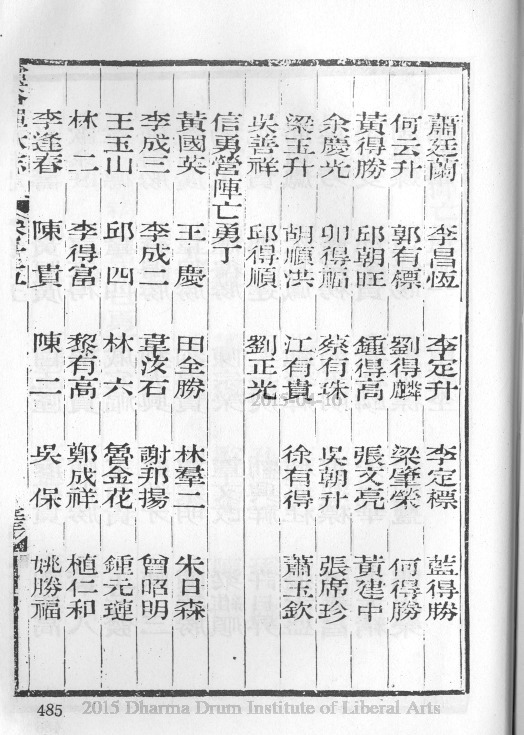 蕭廷蘭 李昌恆 李定升 李定標 藍得勝
何云升 郭有標 劉得麟 梁肇榮 何得勝
黃得勝 邱朝旺 鍾得高 張文亮 黃建中
余慶光 卯得船 蔡有珠 吳朝升 張席珍
梁玉升 胡順洪 江有貴 徐有得 蕭玉欽
吳善祥 邱得順 劉正光
信勇營陣亡勇丁
黃國英 王慶 田全勝 林羣二 朱日森
李成三 李成二 韋汝石 謝邦揚 曾昭明
王玉山 邱四 林六 魯金花 鍾元璉
林二 李得富 黎有高 鄭成祥 植仁和
李逢春 陳貴 陳二 吳保 姚勝福
485
2015 Dharma Drum Institute of Liberal Arts